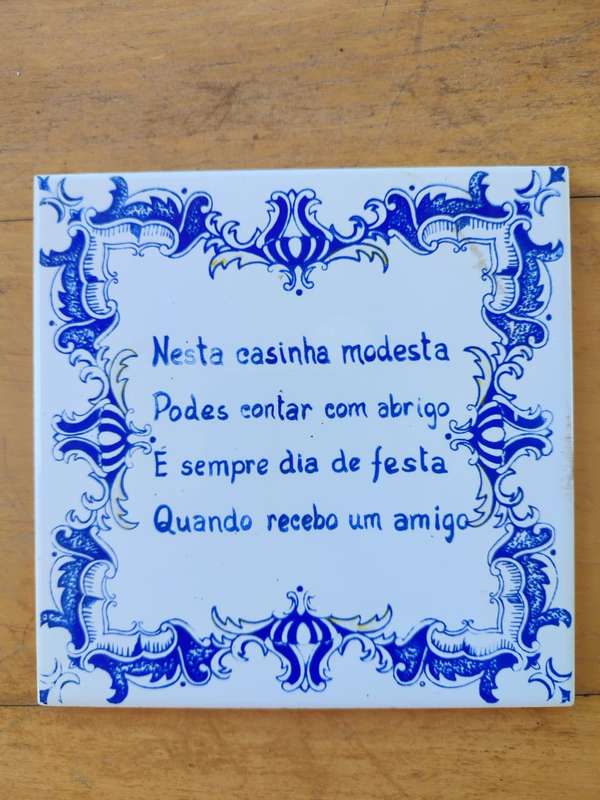 Nesta casinha modesta
Podes contar com abrigo
É sempre dia de festa
Quando recebo um amigo